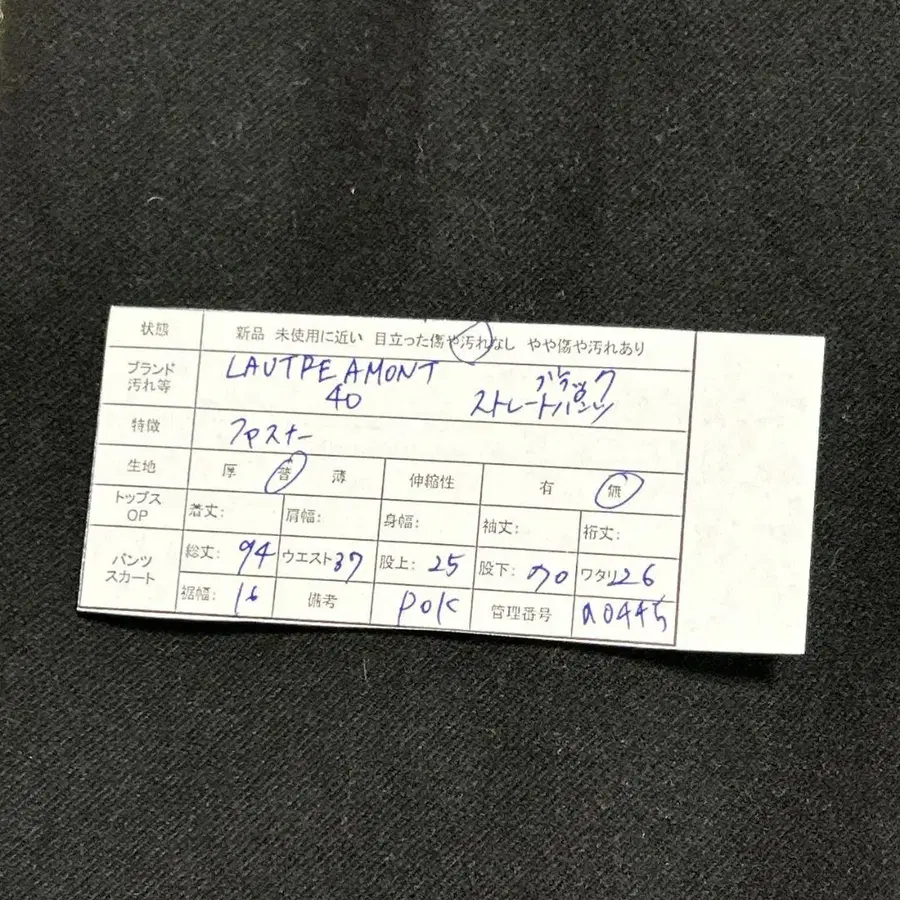 状態 新品 未使用に近い 目立った傷や汚れなし やや傷や汚れあり
ブランド LAUTREAMONT ブラック
汚れ等 40 ストレートパンツ
特徴 ファスナー
生地 厚 普 薄 伸縮性 有 無
トップス OP 着丈: 肩幅: 身幅: 袖丈: 裄丈:
パンツ スカート 総丈: 94 ウエスト37 股上: 25 股下: 70 ワタリ26
裾幅: 16 備考 POK 管理番号 a0445